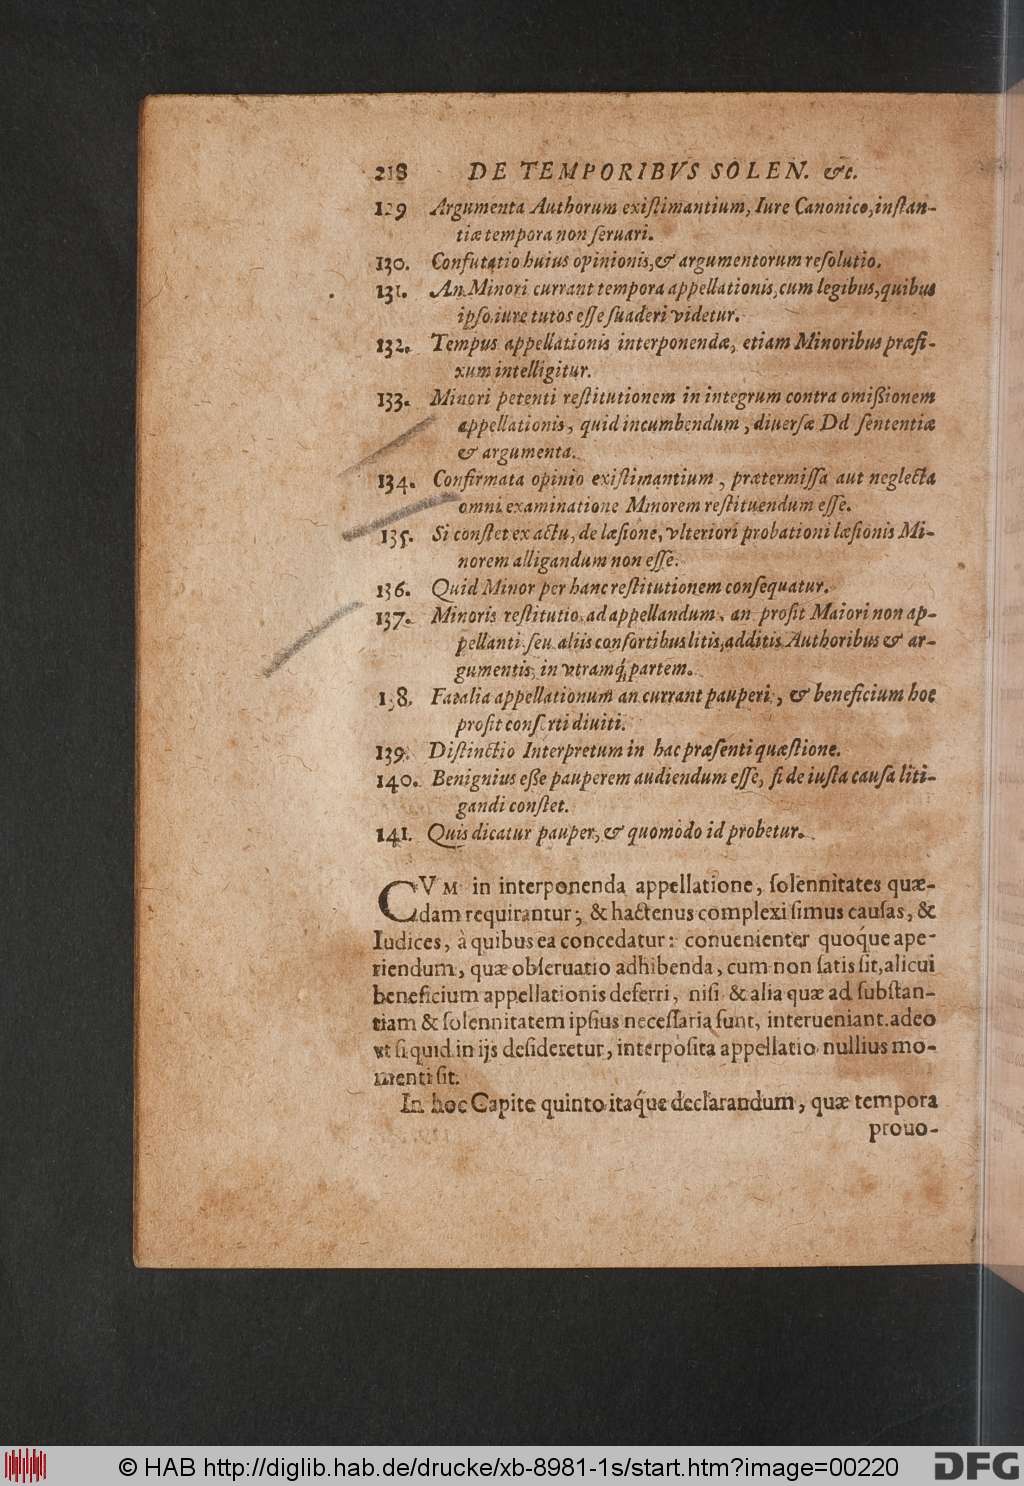 218 DE TEMPORIBVS SOLEN. &c.
129 Argumenta Authorum existimantium, Iure Canonico, instan-
tiæ tempora non seruari.
130. Confutatio huius opinionis, & argumentorum resolutio.
131. An Minori currant tempora appellationis, cum legibus, quibus
ipso iure tutos esse suaderi videtur.
132. Tempus appellationis interponendæ, etiam Minoribus præfi-
xum intelligitur.
133. Minori petenti restitutionem in integrum contra omißionem
appellationis, quid incumbendum, diuersæ Dd sententiæ
& argumenta.
134. Confirmata opinio existimantium, prætermissa aut neglecta
omni examinatione Minorem restituendum esse.
135. Si constet ex actu, de læsione, vlteriori probationi læsionis Mi-
norem alligandum non esse.
136. Quid Minor per hanc restitutionem consequatur.
137. Minoris restitutio ad appellandum, an prosit Maiori non ap-
pellanti seu aliis consortibus litis, additis Authoribus & ar-
gumentis, in vtramq́; partem.
138. Fatalia appellationum an currant pauperi, & beneficium hoc
prosit consorti diuiti.
139. Distinctio Interpretum in hac præsenti quæstione.
140. Benignius eße pauperem audiendum esse, si de iusta causa liti-
gandi constet.
141. Quis dicatur pauper, & quomodo id probetur.
CVM in interponenda appellatione, solennitates quæ-
dam requirantur; & hactenus complexi simus causas, &
Iudices, à quibus ea concedatur: conuenienter quoq́ue ape-
riendum, quæ obseruatio adhibenda, cum non satis sit, alicui
beneficium appellationis deferri, nisi & alia quæ ad substan-
tiam & solennitatem ipsius necessaria sunt, interueniant. adeo
vt si quid in ijs desideretur, interposita appellatio nullius mo-
menti sit.
In hoc Capite quinto itaq́ue declarandum, quæ tempora
prouo-
© HAB http://diglib.hab.de/drucke/xb-8981-1s/start.htm?image=00220
DFG